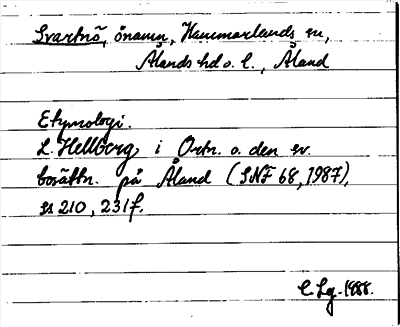 Svartnö, önamn, Hammarlands sn,
Ålands hd o. l., Åland
Etymologi.
L. Hellberg, i Ortn. o. den sv.
bosättn. på Åland (SNF 68, 1987),
ss 210, 231f.
C Lg. 1988.